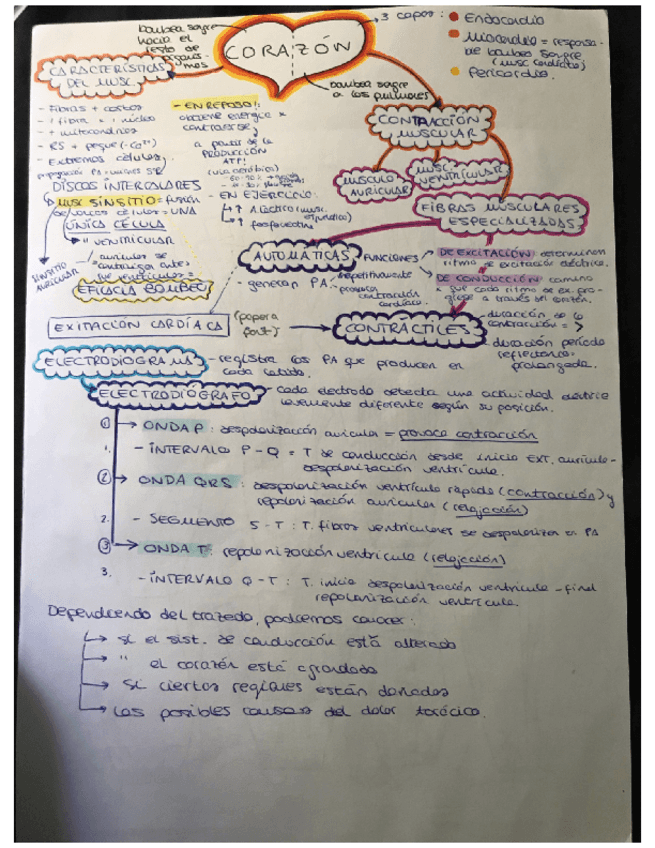 bombea sangre
hacia el
resto de
organis-
mos
CORAZÓN
bombea sangre
a los pulmones
3 capas:
Endocardio
Miocardio = responsa-
de bombea sangre
(musc cardíaco)
Pericardio.
CARACTERÍSTICAS
DEL MUSC
- Fibras + cortas
- 1 fibra = 1 núcleo
- + mitocondrias
- RS + peque (-Ca²⁺)
- Extremos células:
DISCOS INTERCALARES
MUSC SINSITIO = fusión
de varias células = UNA
ÚNICA CÉLULA
" VENTRICULAR
SINSITIO
AURICULAR
- aurículas se
contraigan antes
que ventrículos =
EFICACIA BOMBEO
- EN REPOSO:
obtiene energía x
contraerse
a partir de la
PRODUCCIÓN
ATP:
(vía aeróbica)
- EN EJERCICIO:
↑ A. láctico (musc.
esquelético)
↑ fosfocreatina
CONTRACCIÓN
MUSCULAR
MÚSCULO
AURICULAR
MUSC.
VENTRICULAR
FIBRAS MUSCULARES
ESPECIALIZADAS
AUTOMÁTICAS
FUNCIONES
- generan PA
repetitivamente
provoca
contracción
cardíaca
DE EXCITACIÓN: determinan
ritmo de excitación eléctrica.
DE CONDUCCIÓN: camino
x que cada ritmo de ex. pro-
grese a través del corazón.
EXITACIÓN CARDÍACA
CONTRÁCTILES
- duración de la
contracción = >
- duración período
refractario
prolongada.
ELECTRODIOGRAMA
- registra los PA que producen en
cada latido.
ELECTRODIÓGRAFO
- cada electrodo detecta una actividad eléctric
levemente diferente según su posición.
① → ONDA P: despolarización aurículas = provoca contracción
1. - INTERVALO P-Q = T de conducción desde inicio EXT. aurículo-
despolarización ventrícula.
② → ONDA QRS: despolarización ventrículo rápida (contracción) y
repolarización aurículas (relajación)
2. - SEGMENTO S-T: T. fibras ventriculares se despolarizan en PA
③ → ONDA T: repolarización ventrícula (relajación)
3. - INTERVALO Q-T: T. inicia despolarización ventrícula - final
repolarización ventrícula.
Dependiendo del trazado, podremos conocer:
→ si el sist. de conducción está alterado
→ " el corazón está agrandado
→ Si ciertas regiones están dañadas
→ Las posibles causas del dolor torácico.